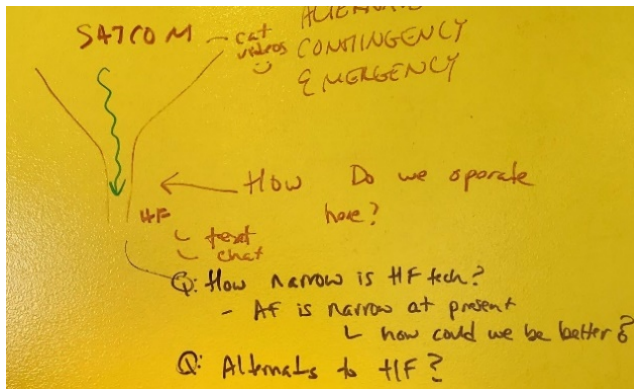 SATCOM - cat videos
ALTERNATE
CONTINGENCY
EMERGENCY
How Do we operate here?
HF
text
chat
Q: How narrow is HF tech?
- AF is narrow at present
how could we be better?
Q: Alternats to HF?